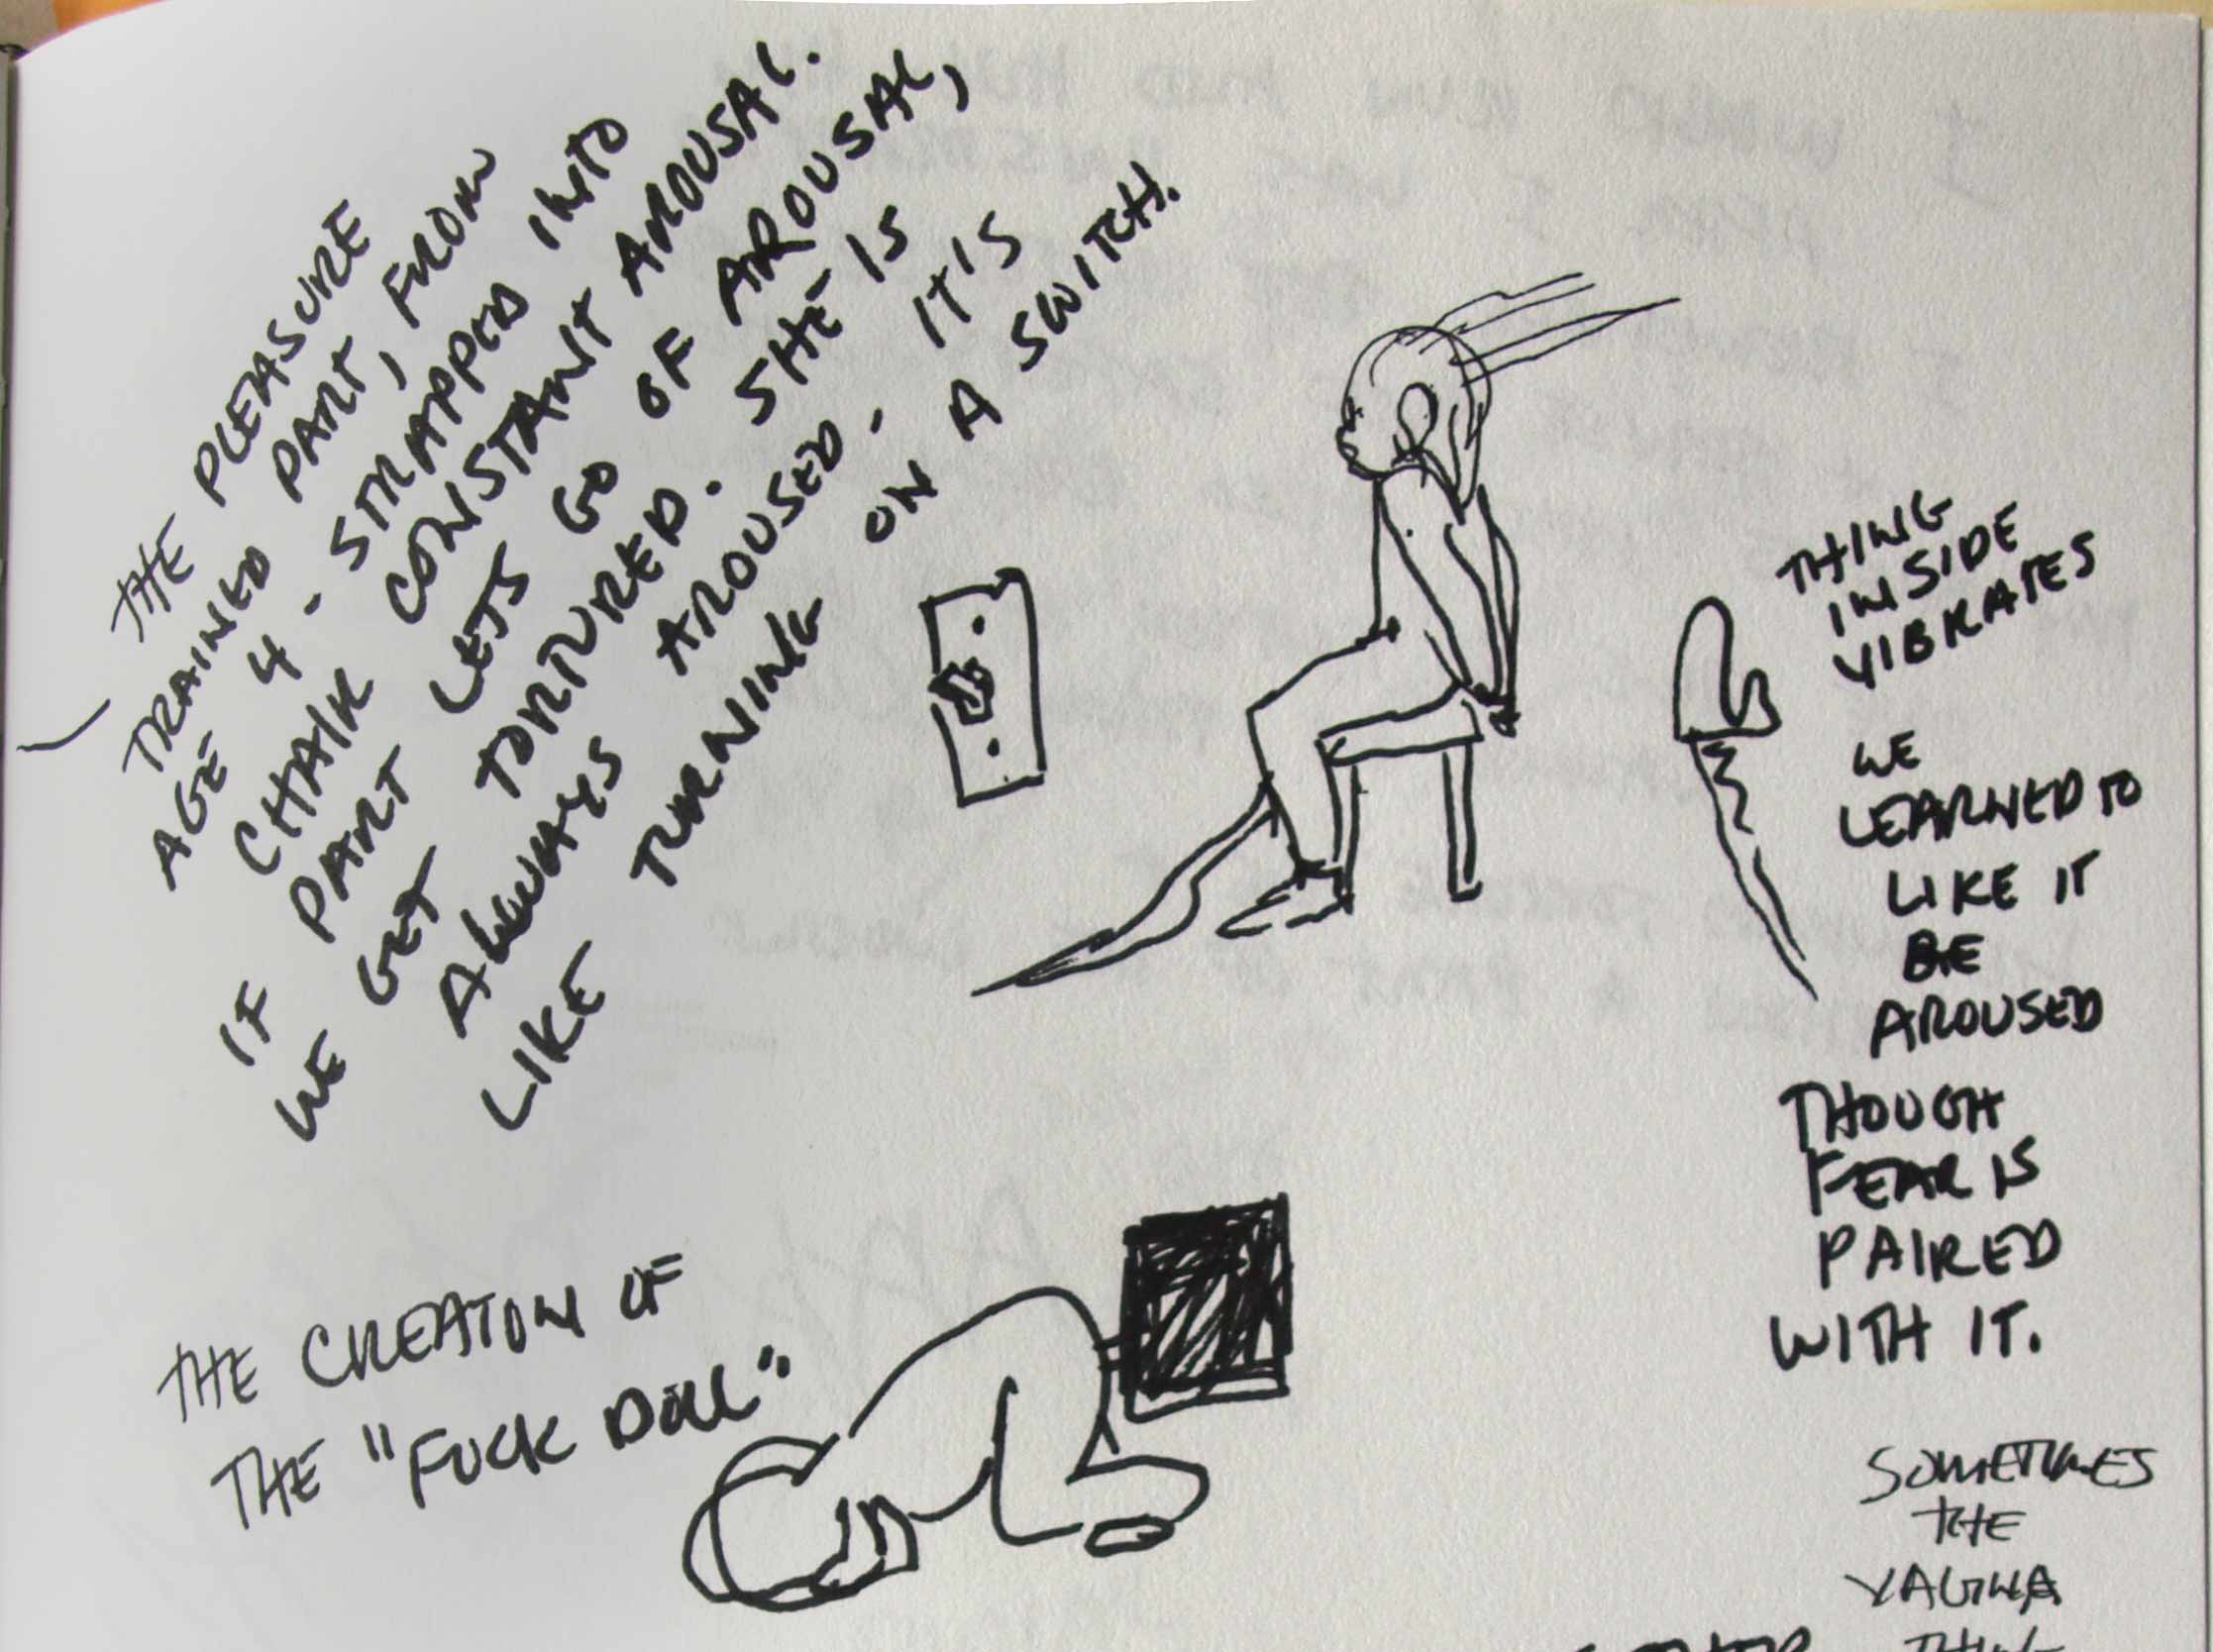 THE PLEASURE
TRAINED PART, FROM
AGE 4. STRAPPED INTO
CHAIR CONSTANT AROUSAL.
IF PART LETS GO OF AROUSAL,
WE GET TORTURED. SHE IS
ALWAYS AROUSED. IT'S
LIKE TURNING ON A SWITCH.
THING
INSIDE
VIBRATES
WE
LEARNED TO
LIKE IT
BE
AROUSED
THOUGH
FEAR IS
PAIRED
WITH IT.
THE CREATION OF
THE "FUCK DOLL"
SOMETIMES
THE
VAGINA